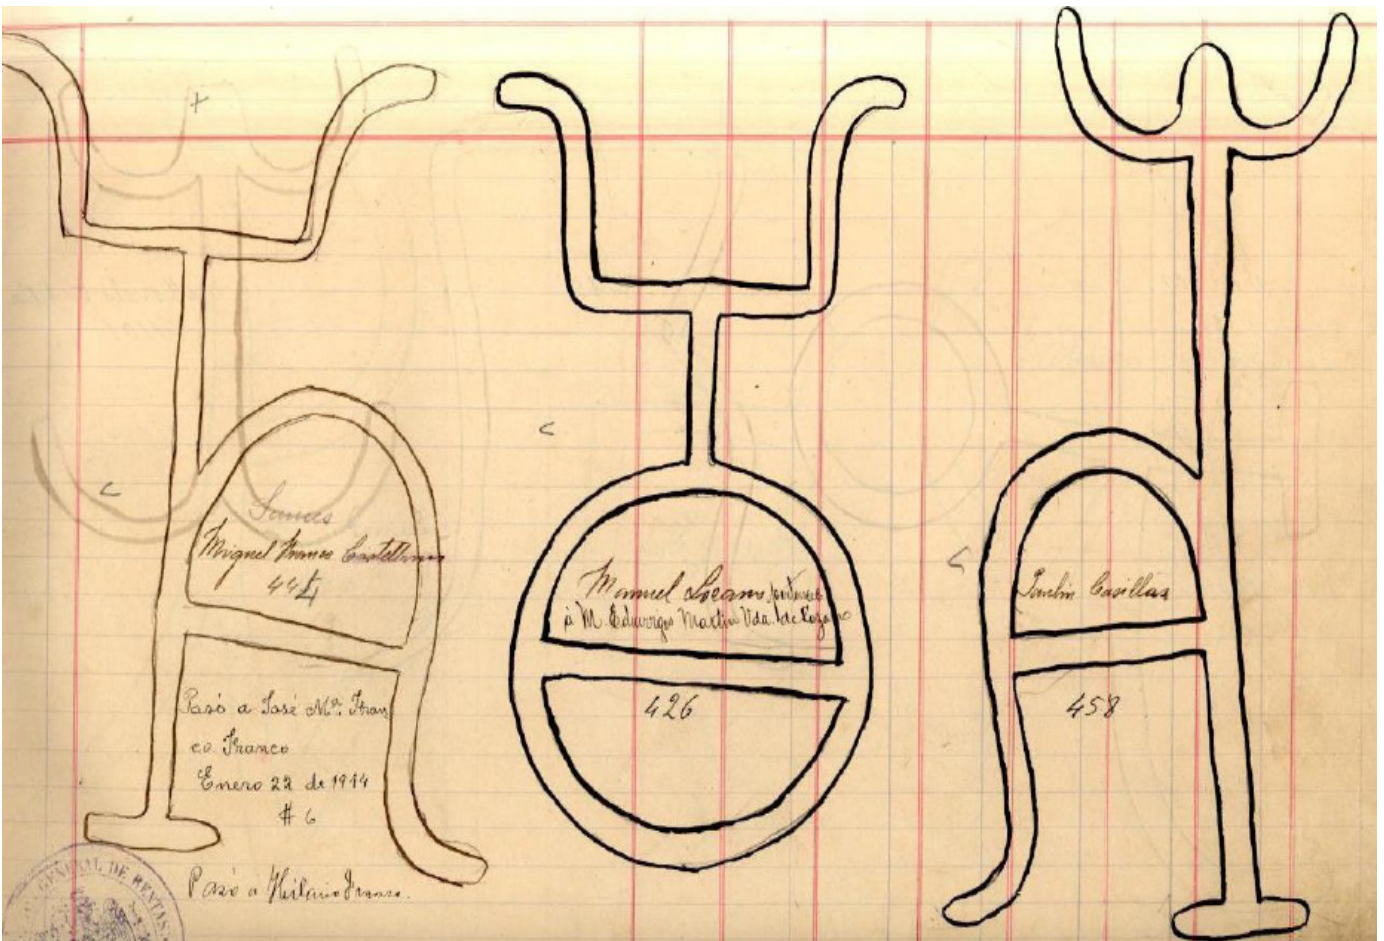 Miguel Franco Castellanos
444
Pasó a José Mª. Fran
co Franco
Enero 22 de 1914
# 6
Pasó a Hilario Franco.
GENERAL DE RENTAS
Manuel Lozano
á M. Eduviges Martin Vda. de Lozano
426
Paulin Casillas
458